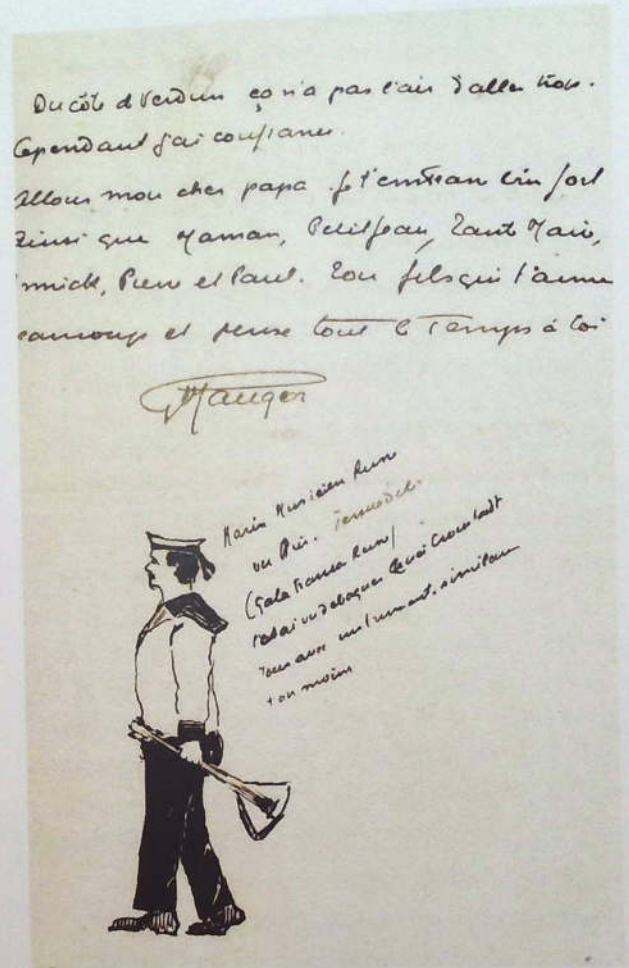 Du côté d Verdun ça n'a pas l'air d'aller trop.
Cependant j'ai confiance.
Allons mon cher papa je t'embrasse bien fort
Ainsi que Maman, Petit Jean, Tante Marie,
nnick, Pierre et Paul. Ton fils qui t'aime
eaucoup et pense tout le Temps à toi
Mauger
Marin Musicien Russe
vu
(Gala Franco Russe)
débarquer Quai Cronstadt
Tous avec instrument similaire
+ ou moins